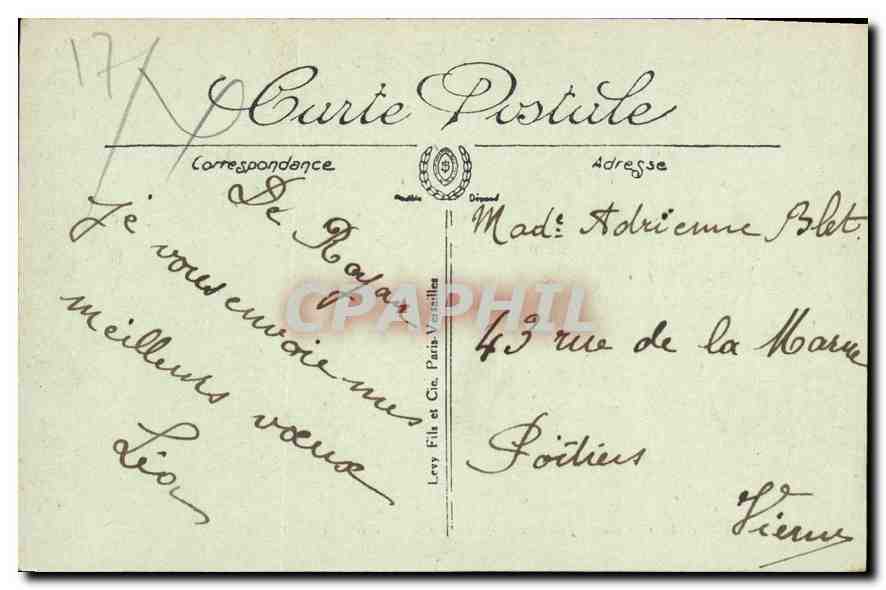 17
Carte Postale
Correspondance
Adresse
Modèle Déposé
De Royan
Je vous envoie mes
meilleurs vœux
Léa
Made: Adrienne Blet.
43a rue de la Marne
Poitiers
Vienne
Levy Fils et Cie, Paris-Versailles
CPAPHIL